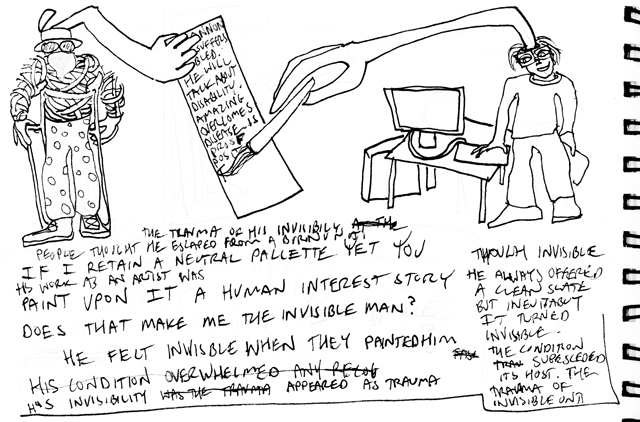 ANNON
SUFFERS
BLED.
HE WILL
TALK ABOUT
DISABILITY.
AMAZING
OVERCOMES
DISEASE IS
THE TRAUMA OF HIS INVISIBILY
PEOPLE THOUGHT HE ESCAPED FROM A
IF I RETAIN A NEUTRAL PALLETTE YET YOU
HIS WORK AS AN ARTIST WAS
PAINT UPON IT A HUMAN INTEREST STORY
DOES THAT MAKE ME THE INVISIBLE MAN?
HE FELT INVISBLE WHEN THEY PAINTED HIM
HIS CONDITION OVERWHELMED ANY
HIS INVISIBILITY WAS THE TRAUMA APPEARED AS TRAUMA
THOUGH INVISIBLE
HE ALWAYS OFFERED
A CLEAN SLATE
BUT INEVITABLY
IT TURNED
INVISIBLE.
THE CONDITION
SUPERSEDED
ITS HOST. THE
TRAUMA OF
INVISIBLE